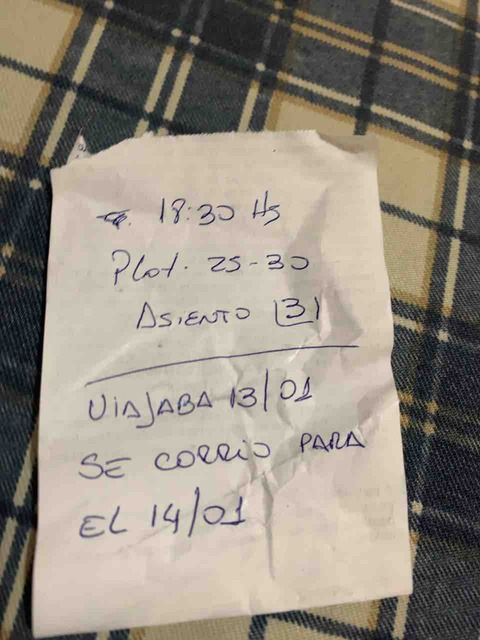 18:30 Hs
Plat. 25-30
ASIENTO 3
VIAJABA 13/01
SE CORRIO PARA
EL 14/01